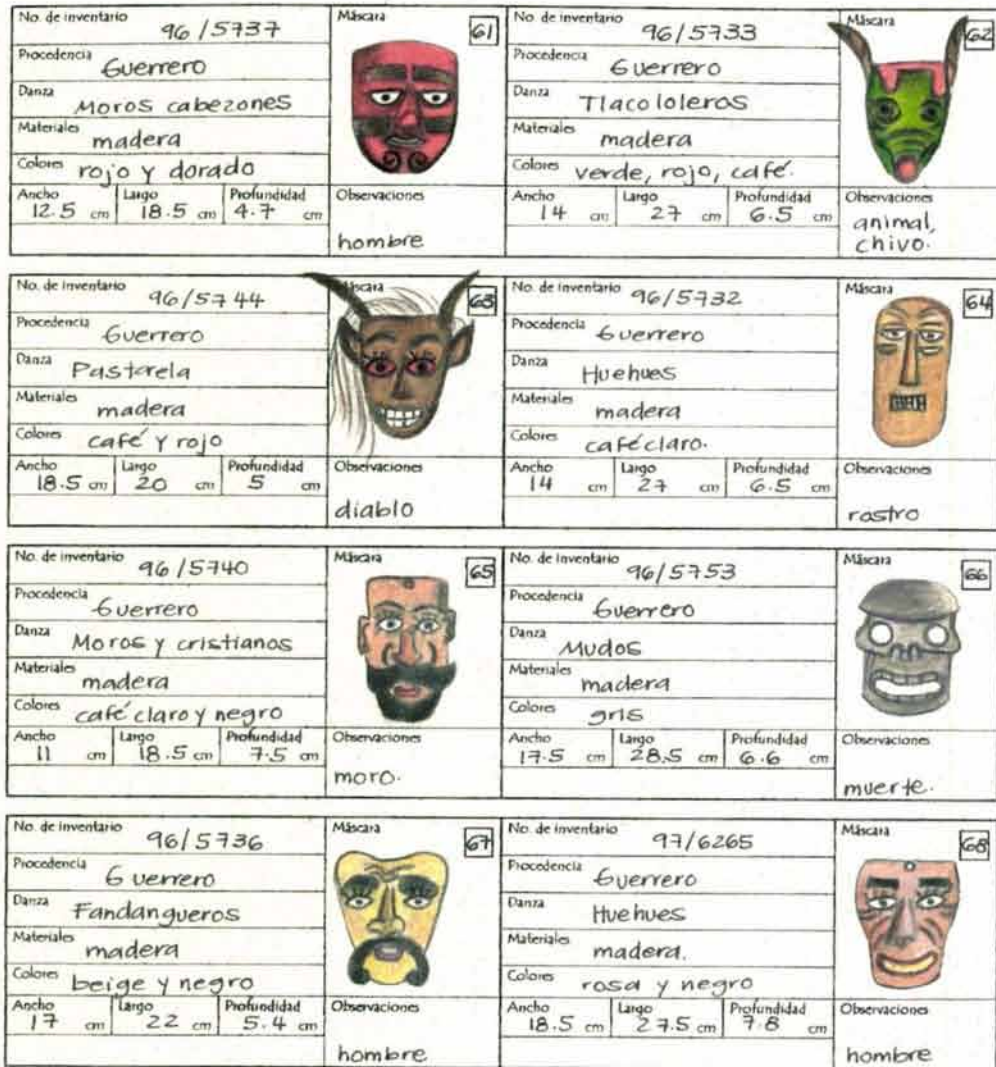 No. de inventario 96/5737
Máscara 61
Procedencia Guerrero
Danza Moros cabezones
Materiales madera
Colores rojo y dorado
Ancho 12.5 cm Largo 18.5 cm Profundidad 4.7 cm
Observaciones hombre
No. de inventario 96/5733
Máscara 62
Procedencia Guerrero
Danza Tlacololeros
Materiales madera
Colores verde, rojo, café.
Ancho 14 cm Largo 27 cm Profundidad 6.5 cm
Observaciones
animal,
chivo.
No. de inventario 96/5744
Máscara 63
Procedencia Guerrero
Danza Pastorela
Materiales madera
Colores café y rojo
Ancho 18.5 cm Largo 20 cm Profundidad 5 cm
Observaciones diablo
No. de inventario 96/5732
Máscara 64
Procedencia Guerrero
Danza Huehues
Materiales madera
Colores café claro.
Ancho 14 cm Largo 27 cm Profundidad 6.5 cm
Observaciones rostro
No. de inventario 96/5740
Máscara 65
Procedencia Guerrero
Danza Moros y cristianos
Materiales madera
Colores café claro y negro
Ancho 11 cm Largo 18.5 cm Profundidad 7.5 cm
Observaciones moro.
No. de inventario 96/5753
Máscara 66
Procedencia Guerrero
Danza Mudos
Materiales madera
Colores gris
Ancho 17.5 cm Largo 28.5 cm Profundidad 6.6 cm
Observaciones muerte.
No. de inventario 96/5736
Máscara 67
Procedencia Guerrero
Danza Fandangueros
Materiales madera
Colores beige y negro
Ancho 17 cm Largo 22 cm Profundidad 5.4 cm
Observaciones hombre
No. de inventario 97/6265
Máscara 68
Procedencia Guerrero
Danza Huehues
Materiales madera.
Colores rosa y negro
Ancho 18.5 cm Largo 27.5 cm Profundidad 7.8 cm
Observaciones hombre